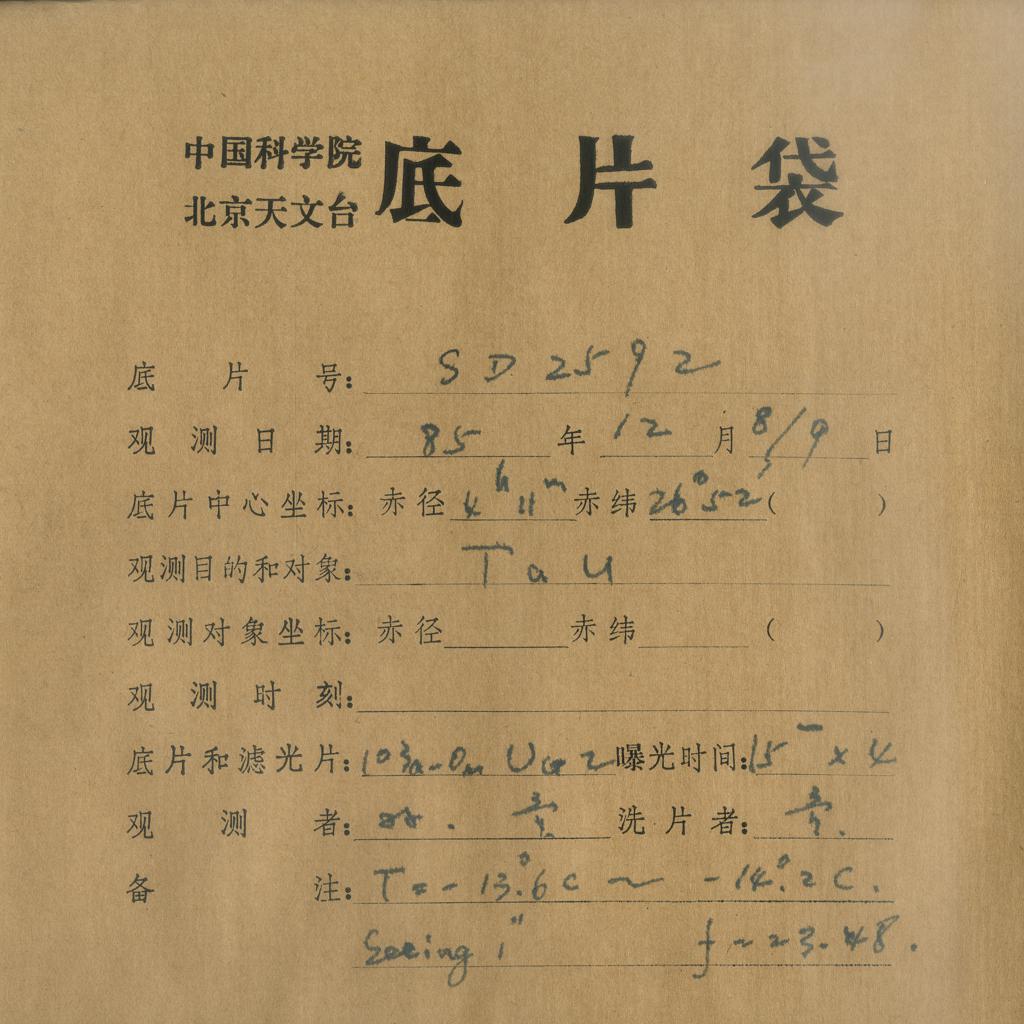 中国科学院
北京天文台
底片袋
底片号: SD2592
观测日期: 85年12月8/9日
底片中心坐标: 赤径 4h11m 赤纬 26°52′( )
观测目的和对象: Tau
观测对象坐标: 赤径 赤纬 ( )
观测时刻:
底片和滤光片: 103a-O 2 曝光时间: 15 x 4
观测者:
洗片者:
备注: T=-13°.6C ~ -14°.2C.
Seeing 1" f~23.48.